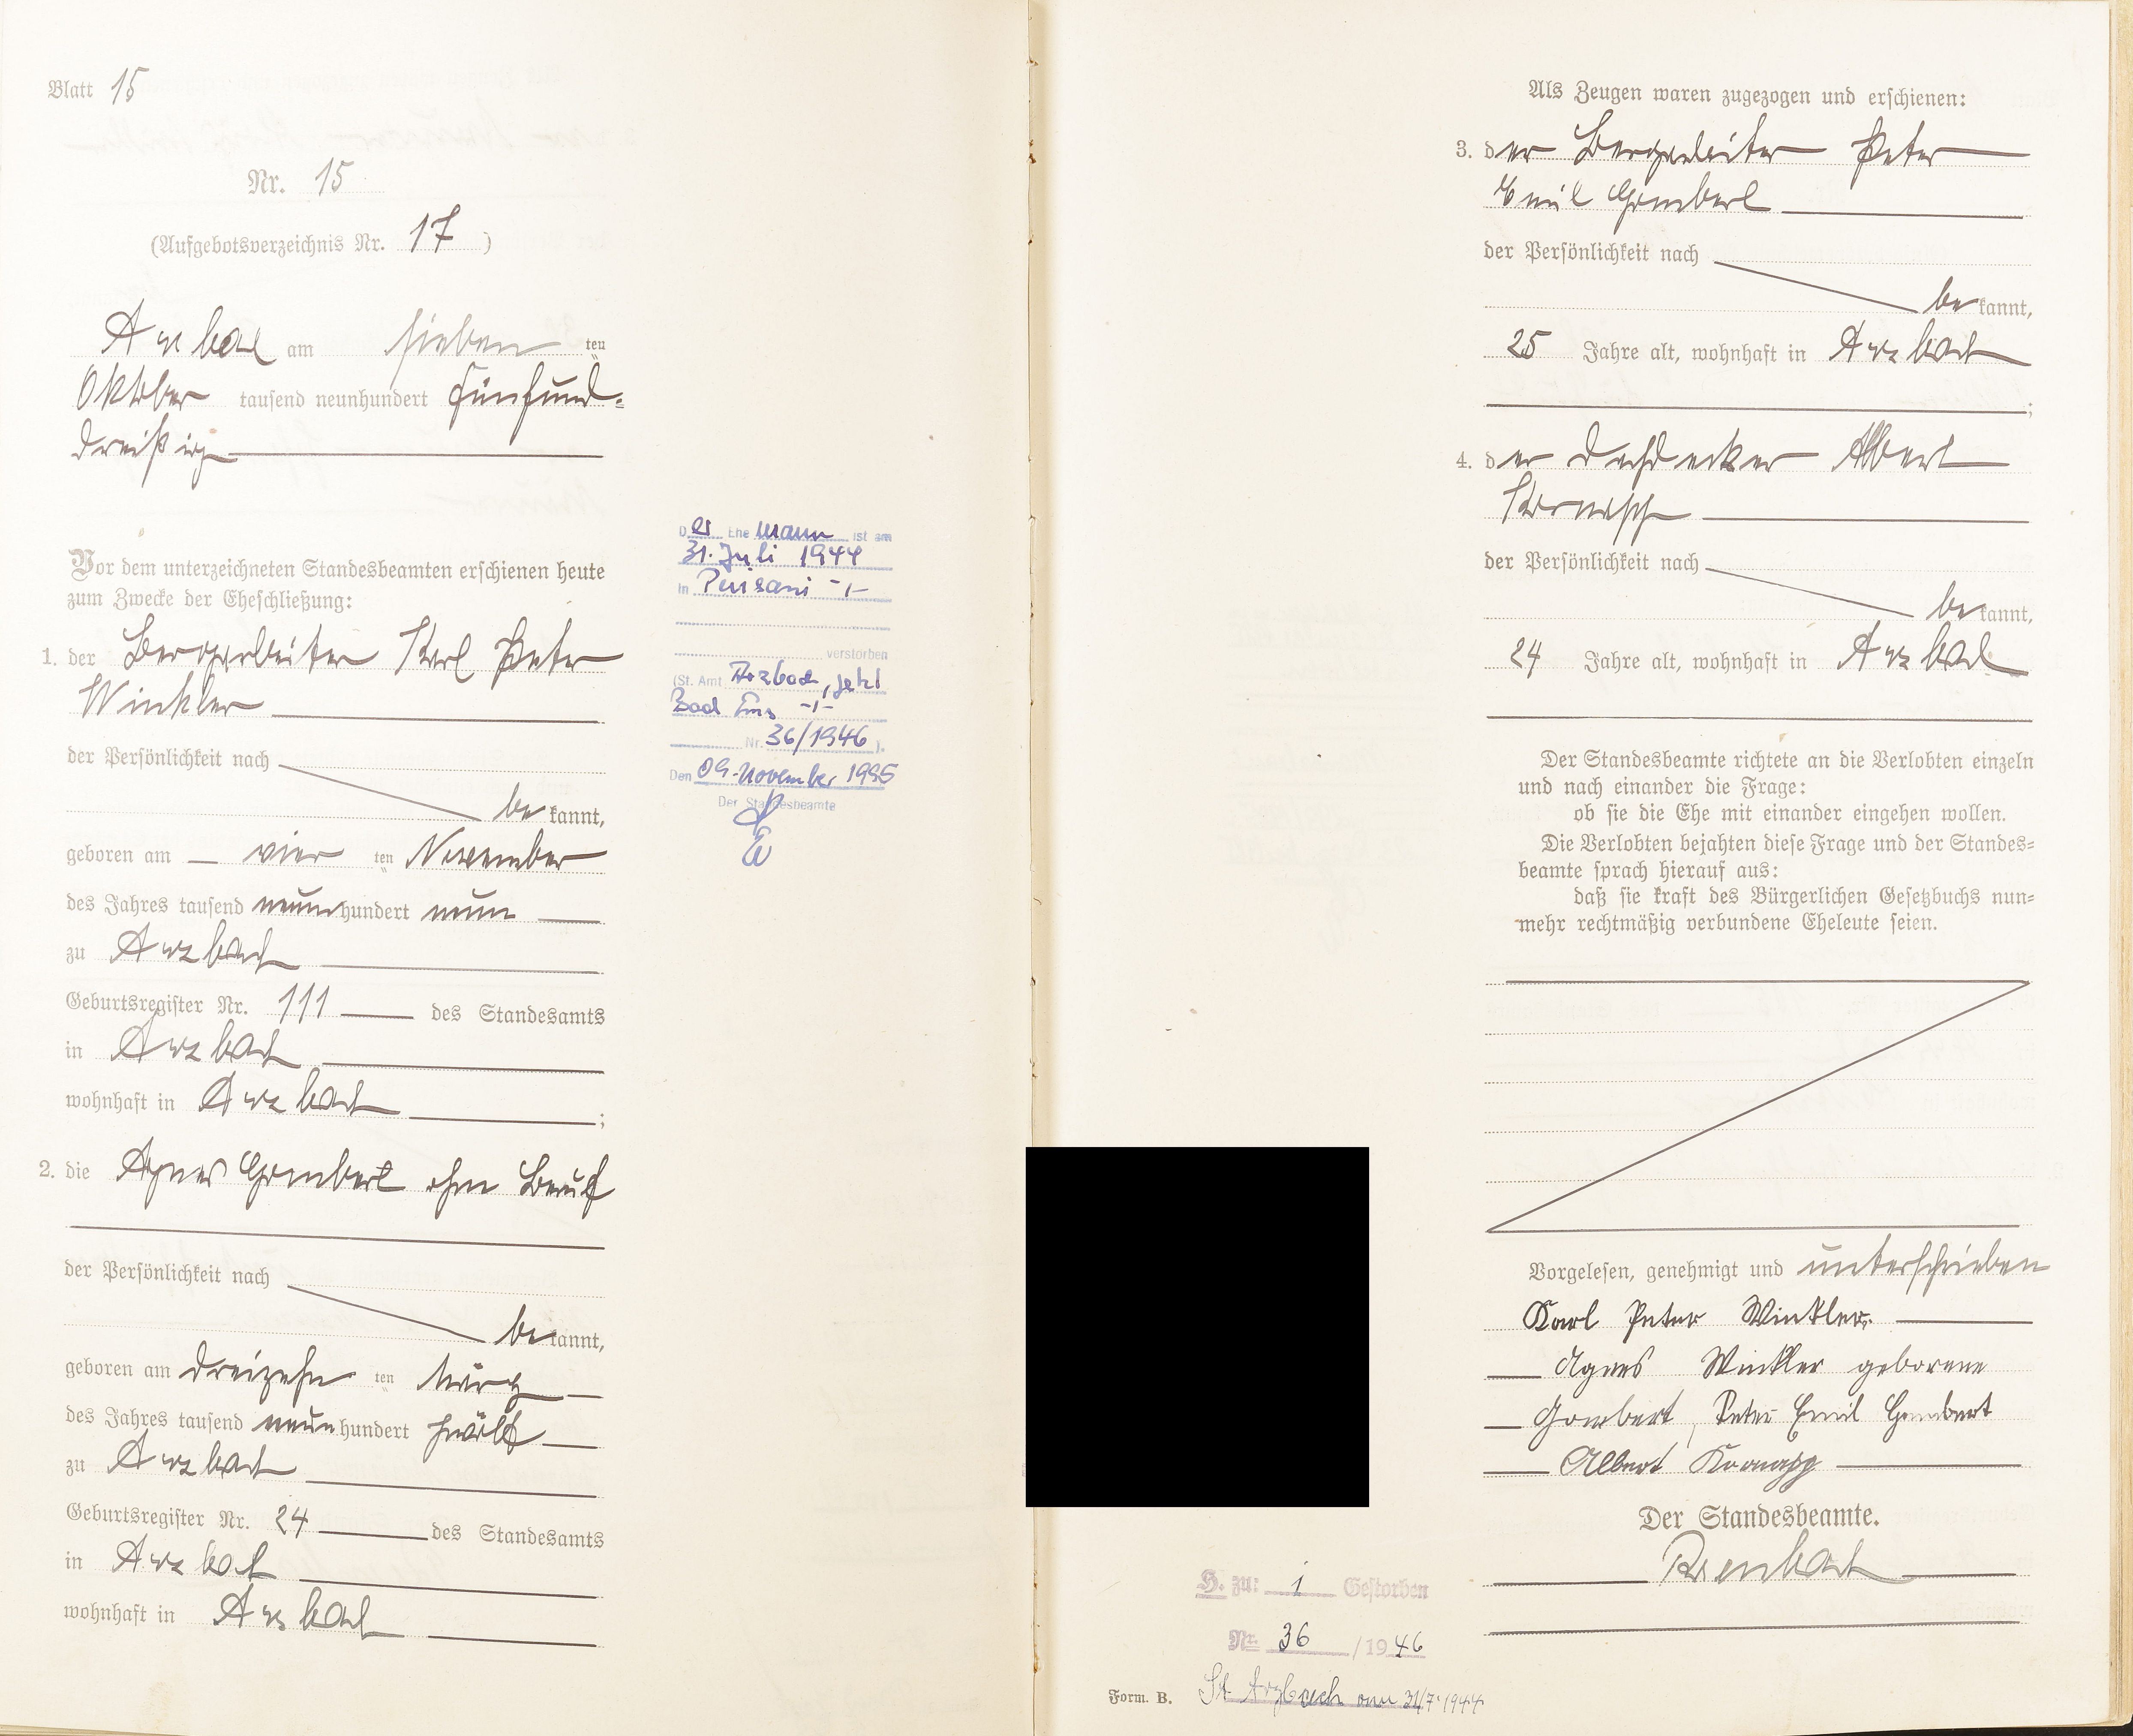 Blatt 15
Nr. 15
(Aufgebotsverzeichnis Nr. 17)
Arzbach am sieben ten
Oktober tausend neunhundert fünfund-
dreißig
Vor dem unterzeichneten Standesbeamten erschienen heute
zum Zwecke der Eheschließung:
1. der Bergarbeiter Karl Peter
Winkler
der Persönlichkeit nach
be kannt,
geboren am vier ten November
des Jahres tausend neunhundert neun
zu Arzbach
Geburtsregister Nr. 111 des Standesamts
in Arzbach
wohnhaft in Arzbach ;
2. die Agnes Gombert ohne Beruf
der Persönlichkeit nach
be kannt,
geboren am dreizehn ten März
des Jahres tausend neunhundert zwölf
zu Arzbach
Geburtsregister Nr. 24 des Standesamts
in Arzbach
wohnhaft in Arzbach
Der Ehemann ist am
31. Juli 1944
in Perisani -/-
verstorben
(St. Amt Arzbach, jetzt
Bad Ems -/-
Nr. 36/1946 ).
Den 09. November 1995
Der Standesbeamte
Als Zeugen waren zugezogen und erschienen:
3. der Bergarbeiter Peter
Emil Gombert
der Persönlichkeit nach
be kannt,
25 Jahre alt, wohnhaft in Arzbach
;
4. der Dachdecker Albert
der Persönlichkeit nach
be kannt,
24 Jahre alt, wohnhaft in Arzbach
Der Standesbeamte richtete an die Verlobten einzeln
und nach einander die Frage:
ob sie die Ehe mit einander eingehen wollen.
Die Verlobten bejahten diese Frage und der Standes-
beamte sprach hierauf aus:
daß sie kraft des Bürgerlichen Gesetzbuchs nun-
mehr rechtmäßig verbundene Eheleute seien.
Vorgelesen, genehmigt und unterschrieben
Karl Peter Winkler.
Agnes Winkler geborene
Gombert, Peter Emil Gombert
Albert
Der Standesbeamte.
H. zu: 1 Gestorben
Nr. 36 /1946
St. Arzbach am 31/7. 1944
Form. B.